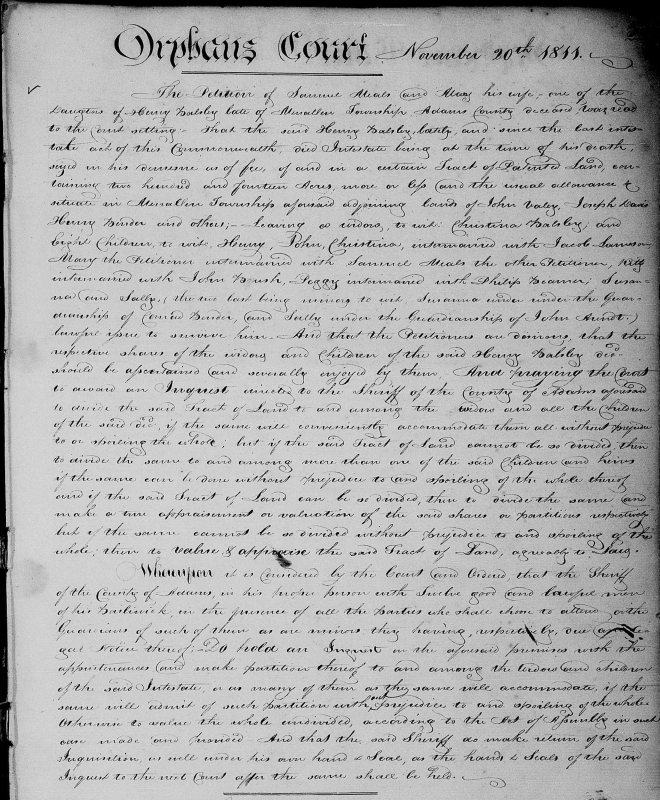 Orphans Court November 20th 1811.
The Petition of Samuel Meals and Mary his wife, one of the
Daughters of Henry Halsley late of Menallen Township Adams County deceased, was read
to the Court setting - That the said Henry Halsley, lately, and since the last intes-
tate act of this Commonwealth, died Intestate being at the time of his death,
seized in his demesne as of fee, of and in a certain Tract of Patented Land, con-
taining two hundred and fourteen Acres, more or less and the usual allowance &
situate in Menallen Township aforesaid adjoining lands of John Joseph Davis
Henry Binder and others; - Leaving a widow, to wit: Christina Halsley; and
Eight Children, to wit, Henry, John, Christina, intermarried with Jacob
Mary the Petitioner intermarried with Samuel Meals the other Petitioner,
intermarried with John Peggy intermarried with Philip Beamer, Susan-
na and Sally, (the two last being minors to wit Susanna under under the Guar-
dianship of Conrad and Sally under the Guardianship of John Arndt.)
lawful issue to survive him. And that the Petitioners are desirous, that the
respective shares of the widow and Children of the said Henry Halsley decd
should be ascertained and severally enjoyed by them. And praying the Court
to award an Inquest directed to the Sheriff of the County of Adams aforesaid
to divide the said Tract of Land to and among the widow and all the Children
of the said decd, if the same will conveniently accommodate them all without prejudice
to or spoiling the whole; but if the said Tract of Land cannot be so divided, then
to divide the same to and among more than one of the said Children and heirs
if the same can be done without prejudice to and spoiling of the whole thereof
and if the said Tract of Land can be so divided, then to divide the same and
make a true appraisement or valuation of the said shares or partitions respectively
but if the same cannot be so divided without prejudice to and spoiling of the
whole; then to value & appraise the said Tract of Land, agreeably to Law.
Whereupon it is considered by the Court and Ordered, that the Sheriff
of the County of Adams, in his proper person with Twelve good and lawful men
of his Bailiwick, in the presence of all the Parties who shall chose to attend or the
Guardians of such of them as are minors they having, respectively, due and le-
gal Notice thereof; - Do hold an Inquest on the aforesaid premises with the
appurtenances and make partition thereof to and among the Widow and children
of the said Intestate, or as many of them as the same will accommodate, if the
same will admit of such Partition without prejudice to and spoiling of the whole
Otherwise to value the whole undivided, according to the Act of Assembly in such
case made and provided - And that the said Sheriff do make return of the said
Inquisition, as well under his own hand & Seal, as the hands & Seals of the said
Inquest to the next Court after the same shall be held.